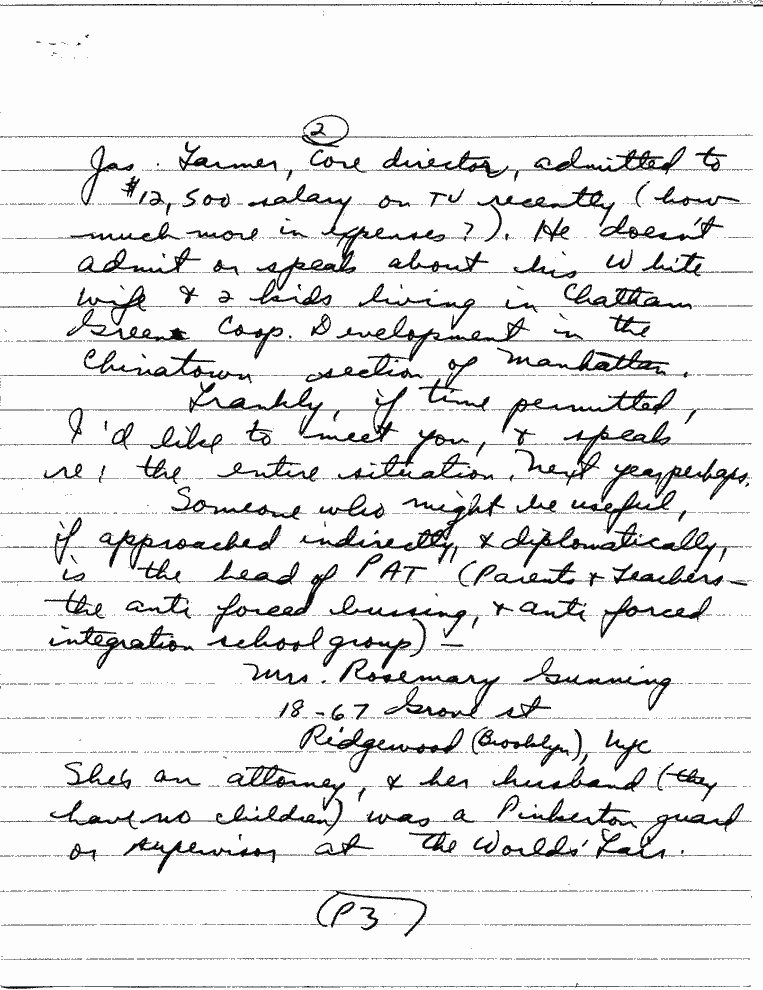 2
Jas. Farmer, Core director, admitted to
$12,500 salary on TV recently (how
much more in expenses?). He doesn't
admit or speak about his White
wife & 2 kids living in Chatham
Green Coop. Development in the
Chinatown section of Manhattan.
Frankly, if time permitted,
I'd like to meet you, & speak
re: the entire situation. Next year, perhaps.
Someone who might be useful,
if approached indirectly, & diplomatically,
is the head of PAT (Parents & Teachers –
the anti forced bussing, & anti forced
integration school group) –
Mrs. Rosemary Gunning
18-67 Grove st
Ridgewood (Brooklyn), NYC
She's an attorney, & her husband (they
have no children) was a Pinkerton guard
or supervisor at the Worlds' Fair.
(P3)